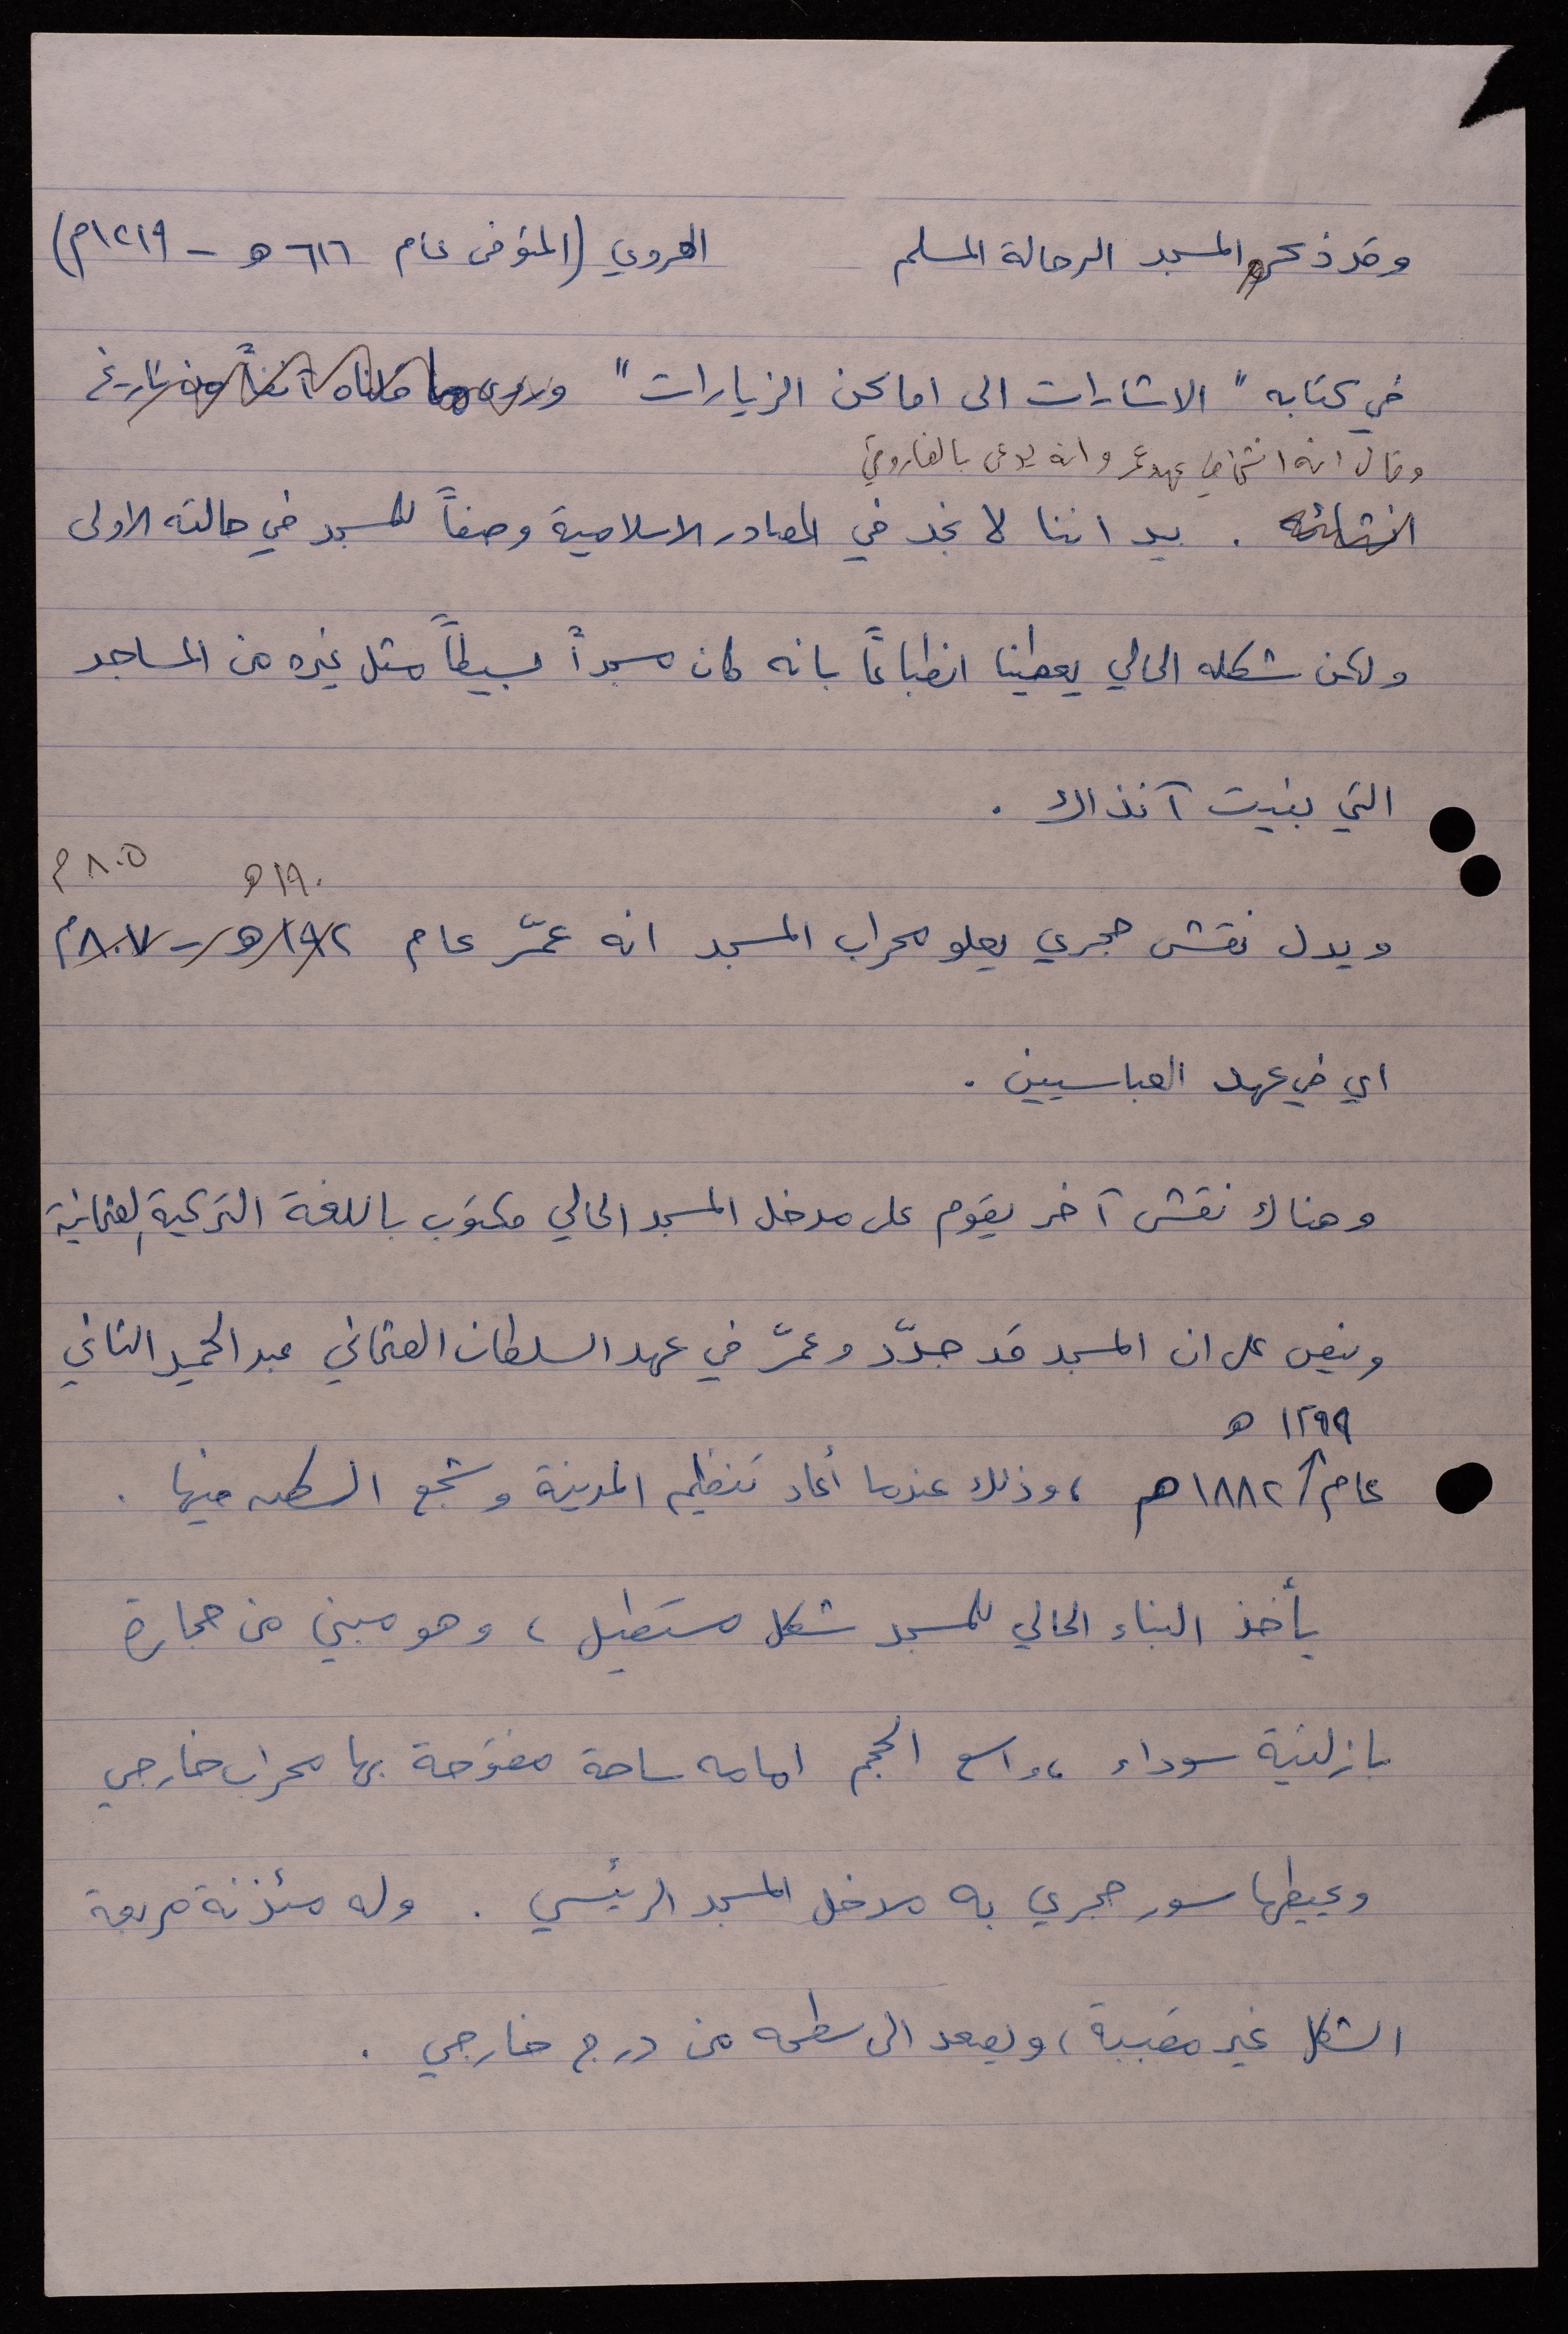 وقد ذكر المسجد الرحالة المسلم الهروي (المتوفى عام ٦١٦ هـ - ١٢١٩م)
في كتابه " الاشارات الى اماكن الزيارات " ما قلناه آنفاً تاريخ
وقال انه انشئ في عهد عمر وانه يدعى بالفاروقي
انشائه . بيد اننا لا نجد في المصادر الاسلامية وصفاً للمسجد في حالته الاولى
ولكن شكله الحالي يعطينا انطباعاً بانه كان مسجداً بسيطاً مثل غيره من المساجد
التي بنيت آنذاك .
١٩٠ هـ ٨٠٥ م
ويدل نقش حجري يعلو محراب المسجد انه عمّر عام ١٩٢ هـ - ٨٠٧ م
اي في عهد العباسيين .
وهناك نقش آخر يقوم على مدخل المسجد الحالي مكتوب باللغة التركية العثمانية
وينص على ان المسجد قد جدّد وعمّر في عهد السلطان العثماني عبد الحميد الثاني
١٢٩٩ هـ
عام / ١٨٨٢ م ، وذلك عندما أعاد تنظيم المدينة وشجع السكن فيها .
يأخذ البناء الحالي للمسجد شكل مستطيل ، وهو مبني من حجارة
بازلتية سوداء ، واسع الحجم امامه ساحة مفتوحة بها محراب خارجي
ويحيطها سور حجري به مدخل المسجد الرئيسي . وله مئذنة مربعة
الشكل غير مقببة ، ويصعد الى سطحه من درج خارجي .